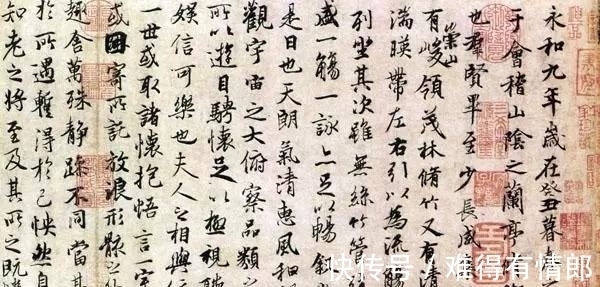 永和九年歲在癸丑暮
于會稽山陰之蘭亭
也羣賢畢至少長咸
崇山
有峻領茂林脩竹又有清
湍暎帶左右引以為流觴
列坐其次雖無絲竹管
盛一觴一詠亦足以暢叙
是日也天朗氣清惠風和
觀宇宙之大俯察品類之
所以遊目騁懷足以極視
娛信可樂也夫人之相與
一世或取諸懷抱悟言一室
或因寄所託放浪形骸之
趣舍萬殊靜躁不同當其
於所遇蹔得於己怏然自
知老之將至及其所之既
快传号 / 难得有情郎